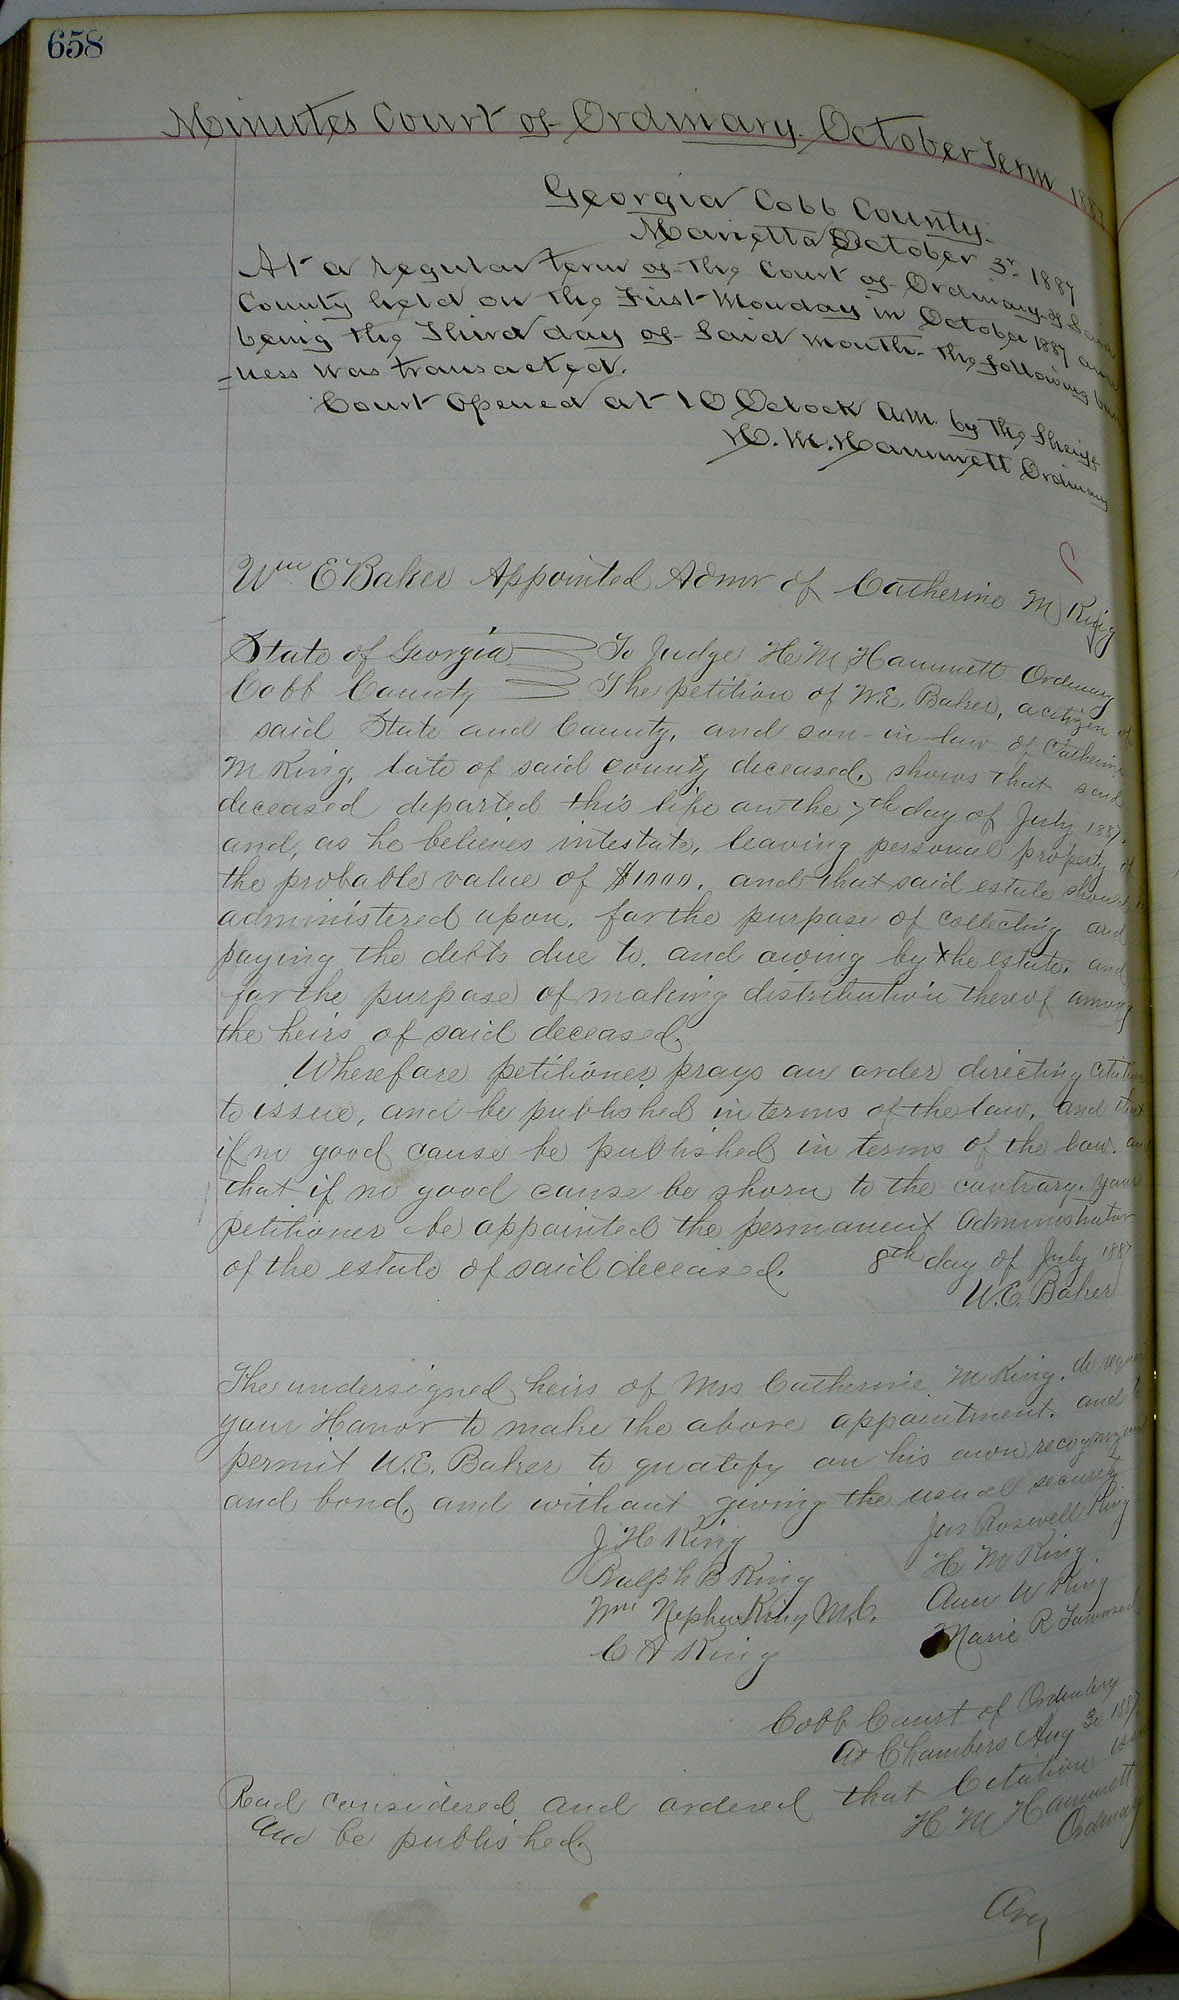 658
Minutes Court of Ordinary October Term 1887
Georgia Cobb County.
Marietta October 3r 1887
At a regular term of the Court of Ordinary of Said
County held on the First Monday in October 1887 and
being the Third day of Said month. the following busi
=ness was transacted.
Court Opened at 10 Oclock A.M. by the Sheriff
H. M. Hammett Ordinary
Wm E Baker Appointed Admr of Catherine M King
State of Georgia To Judge H M Hammett Ordinary
Cobb County The petition of W.E. Baker, a citizen of
said State and County, and son-in-law of Catherine
M King, late of said county deceased, shows that said
deceased departed this life on the 7th day of July 1887,
and, as he believes intestate, leaving personal property of
the probable value of $1000, and that said estate should be
administered upon, for the purpose of collecting and
paying the debts due to, and owing by the estate, and
for the purpose of making distribution thereof among
the heirs of said deceased.
Wherefore petitioner prays an order directing citation
to issue, and be published in terms of the law, and that
if no good cause be published in terms of the law. and
that if no good cause be shorn to the contrary. your
petitioner be appointed the permanent administrator
of the estate of said deceased. 8th day of July 1887
W.E. Baker
The undersigned heirs of Mrs Catherine M King. do request
your Honor to make the above appointment. and to
permit W.E. Baker to qualify on his own
and bond, and without giving the usual security
J H King Jas Roswell King
Ralph B King H M King
Wm Nephew King M.C. Ann W King
C A King Marie R
Cobb Court of Ordinary
At Chambers Aug 3d 1887,
Read considered and ordered that Citation
And be published. H M Hammett
Ordinary
Over